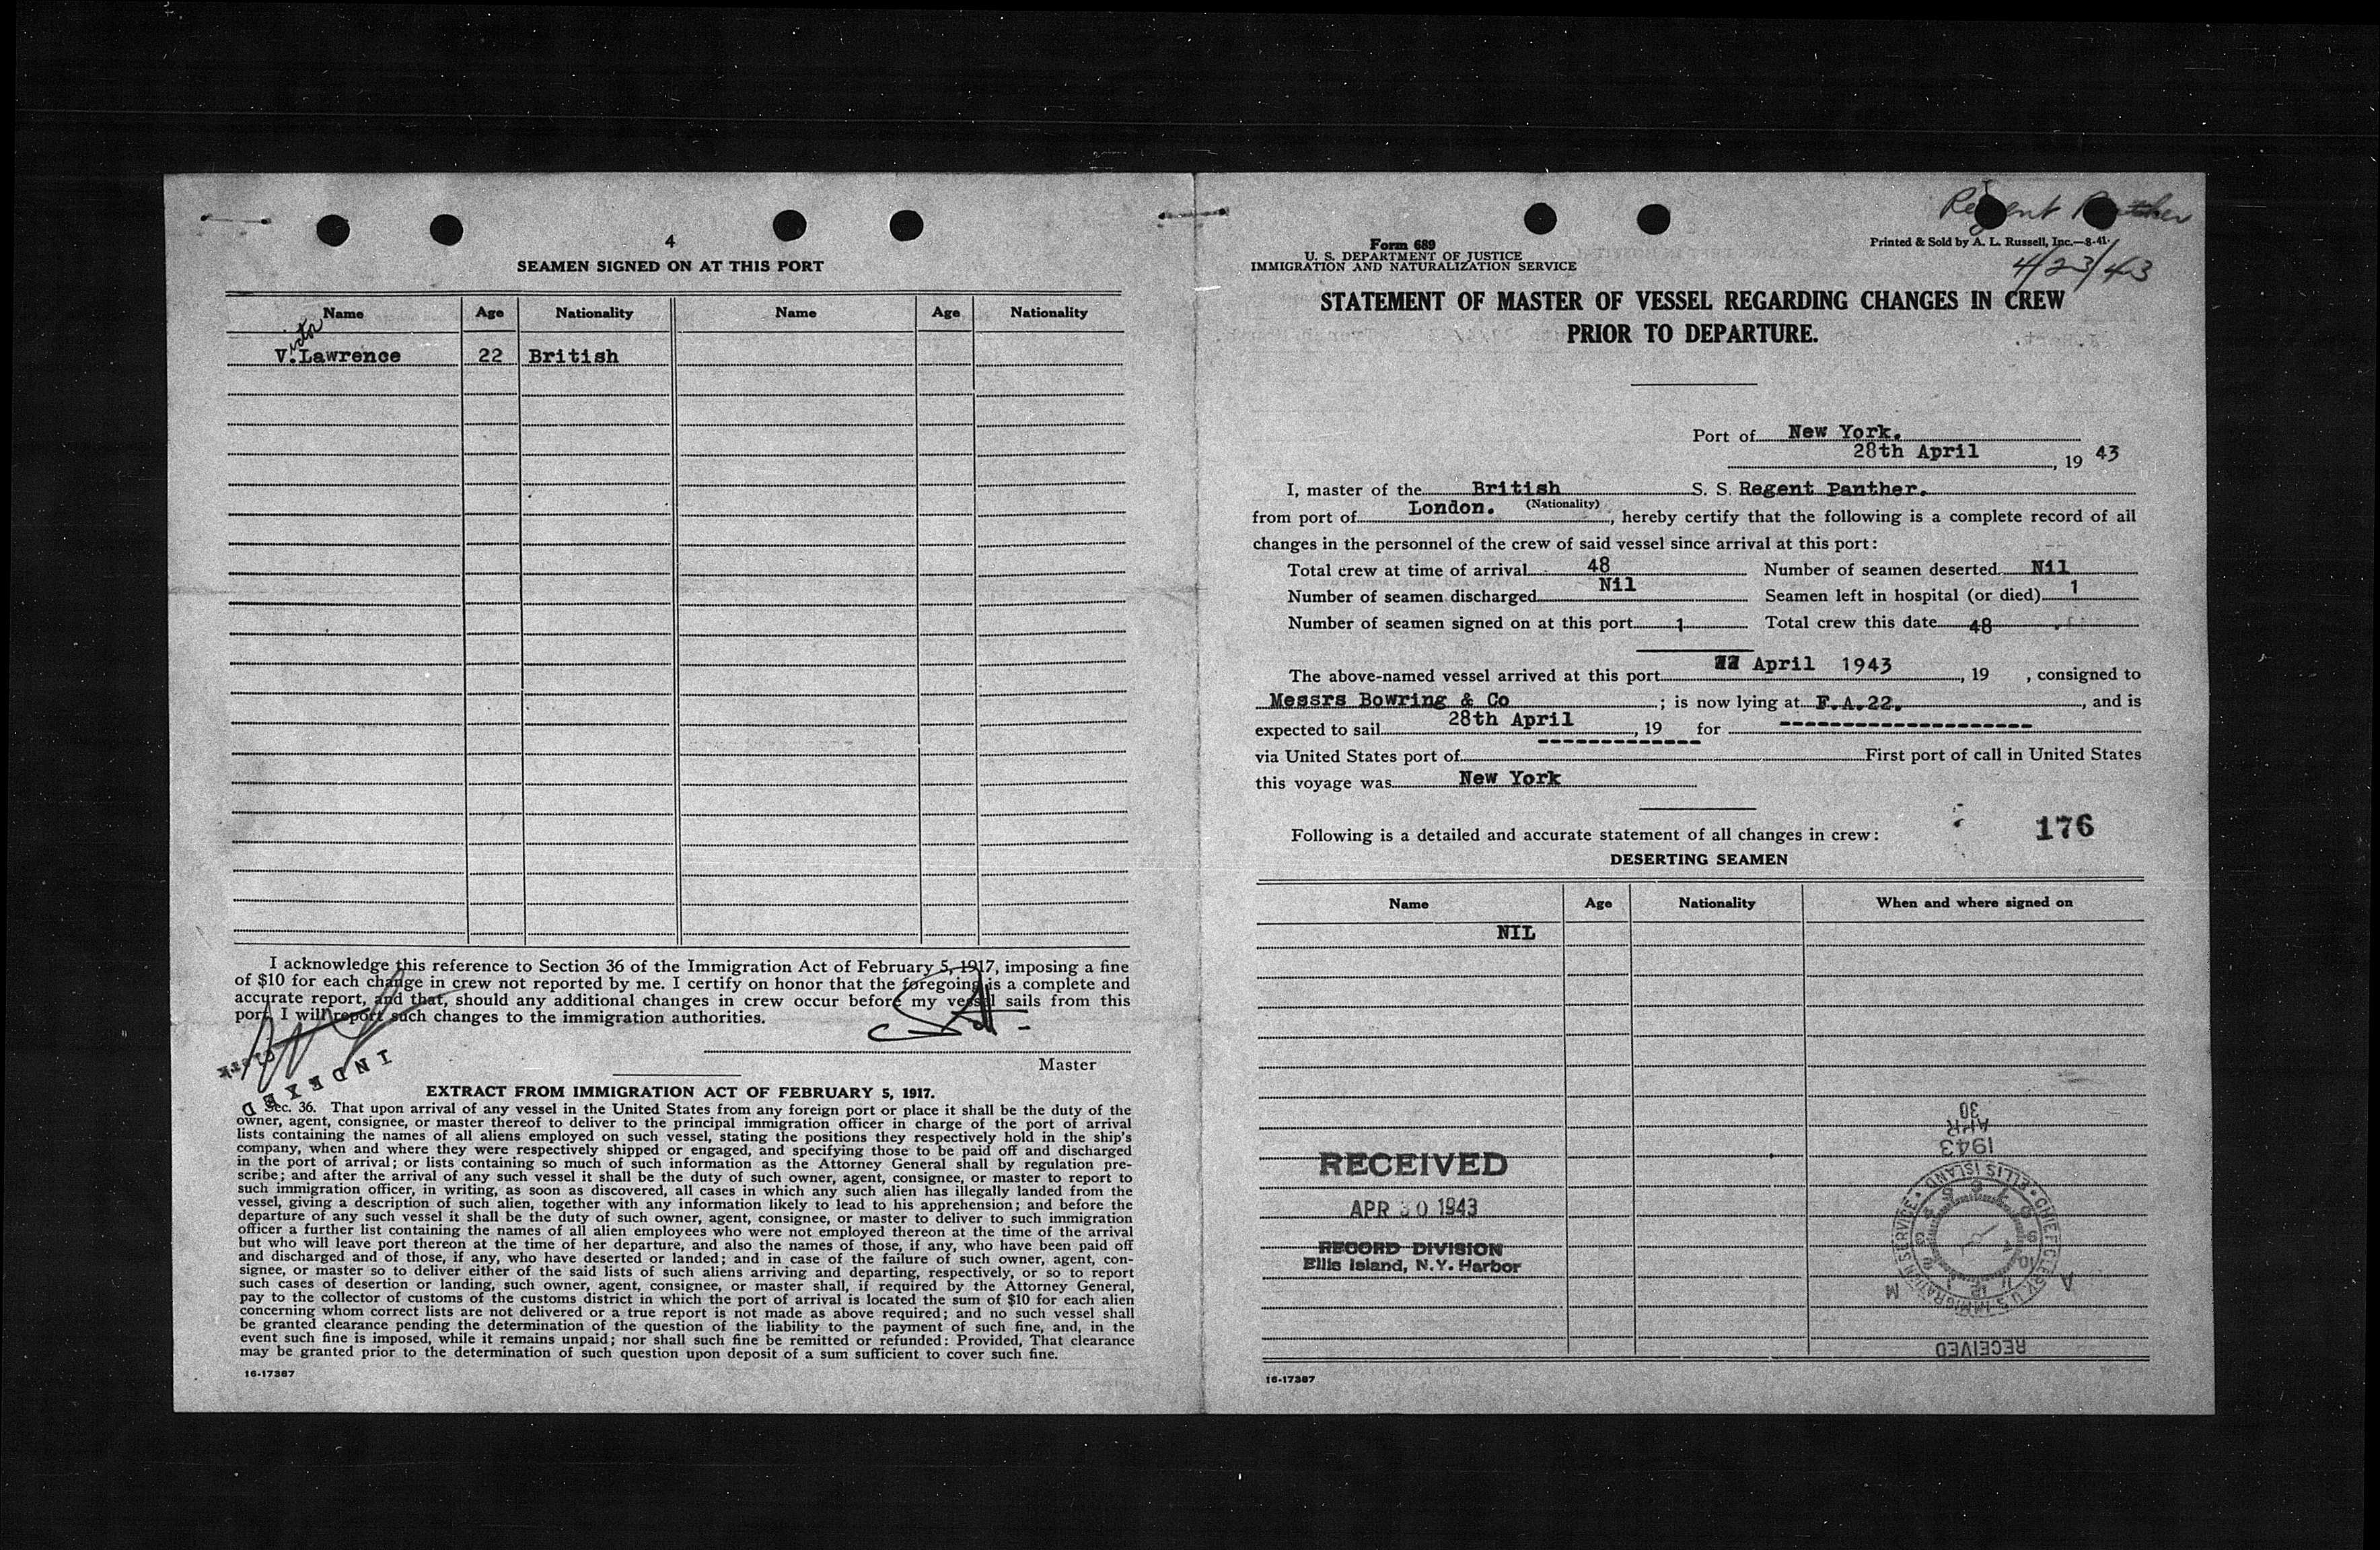 4
SEAMEN SIGNED ON AT THIS PORT
Name Age Nationality Name Age Nationality
Victor
V. Lawrence 22 British
I acknowledge this reference to Section 36 of the Immigration Act of February 5, 1917, imposing a fine
of $10 for each change in crew not reported by me. I certify on honor that the foregoing is a complete and
accurate report, and that, should any additional changes in crew occur before my vessel sails from this
port, I will report such changes to the immigration authorities.
INDEXED
Master
EXTRACT FROM IMMIGRATION ACT OF FEBRUARY 5, 1917.
Sec. 36. That upon arrival of any vessel in the United States from any foreign port or place it shall be the duty of the
owner, agent, consignee, or master thereof to deliver to the principal immigration officer in charge of the port of arrival
lists containing the names of all aliens employed on such vessel, stating the positions they respectively hold in the ship's
company, when and where they were respectively shipped or engaged, and specifying those to be paid off and discharged
in the port of arrival; or lists containing so much of such information as the Attorney General shall by regulation pre-
scribe; and after the arrival of any such vessel it shall be the duty of such owner, agent, consignee, or master to report to
such immigration officer, in writing, as soon as discovered, all cases in which any such alien has illegally landed from the
vessel, giving a description of such alien, together with any information likely to lead to his apprehension; and before the
departure of any such vessel it shall be the duty of such owner, agent, consignee, or master to deliver to such immigration
officer a further list containing the names of all alien employees who were not employed thereon at the time of the arrival
but who will leave port thereon at the time of her departure, and also the names of those, if any, who have been paid off
and discharged and of those, if any, who have deserted or landed; and in case of the failure of such owner, agent, con-
signee, or master so to deliver either of the said lists of such aliens arriving and departing, respectively, or so to report
such cases of desertion or landing, such owner, agent, consignee, or master shall, if required by the Attorney General,
pay to the collector of customs of the customs district in which the port of arrival is located the sum of $10 for each alien
concerning whom correct lists are not delivered or a true report is not made as above required; and no such vessel shall
be granted clearance pending the determination of the question of the liability to the payment of such fine, and, in the
event such fine is imposed, while it remains unpaid; nor shall such fine be remitted or refunded: Provided, That clearance
may be granted prior to the determination of such question upon deposit of a sum sufficient to cover such fine.
16-17387
Regent Panther
Form 689
U. S. DEPARTMENT OF JUSTICE
IMMIGRATION AND NATURALIZATION SERVICE
Printed & Sold by A. L. Russell, Inc.—8-41
4/23/43
STATEMENT OF MASTER OF VESSEL REGARDING CHANGES IN CREW
PRIOR TO DEPARTURE.
Port of New York.
28th April, 19 43
I, master of the British S. S. Regent Panther.
(Nationality)
from port of London., hereby certify that the following is a complete record of all
changes in the personnel of the crew of said vessel since arrival at this port:
Total crew at time of arrival 48 Number of seamen deserted Nil
Number of seamen discharged Nil Seamen left in hospital (or died) 1
Number of seamen signed on at this port 1 Total crew this date 48
The above-named vessel arrived at this port April 1943, 19 , consigned to
Messrs Bowring & Co; is now lying at F.A.22., and is
expected to sail 28th April, 19 for
via United States port of First port of call in United States
this voyage was New York
Following is a detailed and accurate statement of all changes in crew:
176
DESERTING SEAMEN
Name Age Nationality When and where signed on
NIL
RECEIVED
APR 30 1943
RECORD DIVISION
Ellis Island, N.Y. Harbor
RECEIVED
CHIEF CLERK U S IMMIGRATION SERVICE · ELLIS ISLAND ·
A M
1943
APR
30
16-17387